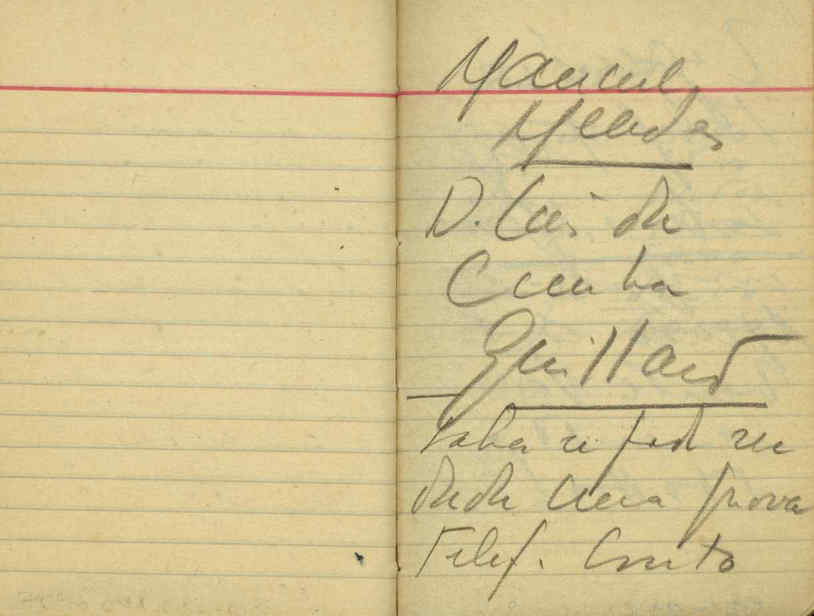 Manuel
Mendes
D. Luís da
Cunha
Guilland
Saber se pode ser
dada uma prova
Telef. Couto